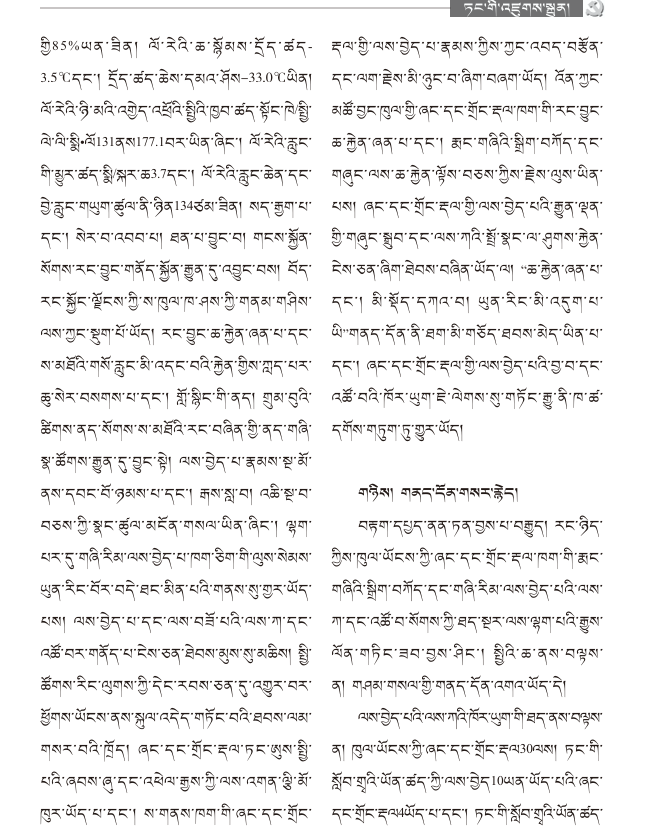 ཏང་གི་འཛུགས་སྐྲུན།
གྱི85%ཡན་ཟིན། ལོ་རེའི་ཆ་སྙོམས་དྲོད་ཚད-
3.5℃དང་། དྲོད་ཚད་ཆེས་དམའ་ཤོས–33.0℃ཡིན།
ལོ་རེའི་ཉི་མའི་འགྱེད་འཕྲོའི་སྤྱིའི་ཁྱབ་ཚད་སྟོང་ཁེ/སྤྱི་
ལེ་ལི་སྨི•ལོ131ནས177.1བར་ཡིན་ཞིང་། ལོ་རེའི་རླུང་
གི་མྱུར་ཚད་སྨི/སྐར་ཆ3.7དང་། ལོ་རེའི་རླུང་ཆེན་དང་
བྱེ་རླུང་གཡུག་ཚུལ་ནི་ཉིན134ཙམ་ཟིན། སད་རྒྱག་པ་
དང་། སེར་བ་འབབ་པ། ཐན་པ་བྱུང་བ། གངས་སྐྱོན་
སོགས་རང་བྱུང་གནོད་སྐྱོན་རྒྱུན་དུ་འབྱུང་བས། བོད་
རང་སྐྱོང་ལྗོངས་ཀྱི་ས་ཁུལ་ཁ་ཤས་ཀྱི་གནམ་གཤིས་
ལས་ཀྱང་སྡུག་པོ་ཡོད། རང་བྱུང་ཆ་རྐྱེན་ཞན་པ་དང་
ས་མཐོའི་གསོ་རླུང་མི་འདང་བའི་རྐྱེན་གྱིས་ཀླད་པར་
ཆུ་སེར་བསགས་པ་དང་། གློ་སྙིང་གི་ནད། གྲུམ་བུའི་
ཚིགས་ནད་སོགས་ས་མཐོའི་རང་བཞིན་གྱི་ནད་གཞི་
སྣ་ཚོགས་རྒྱུན་དུ་བྱུང་སྟེ། ལས་བྱེད་པ་རྣམས་སྔ་མོ་
ནས་དབང་པོ་ཉམས་པ་དང་། རྒས་སླ་བ། འཆི་སྔ་བ་
བཅས་ཀྱི་སྣང་ཚུལ་མངོན་གསལ་ཡིན་ཞིང་། ལྷག་
པར་དུ་གཞི་རིམ་ལས་བྱེད་པ་ཁག་ཅིག་གི་ལུས་སེམས་
ཡུན་རིང་པོར་བདེ་ཐང་མིན་པའི་གནས་སུ་གྱུར་ཡོད་
པས། ལས་བྱེད་པ་དང་ལས་བཟོ་པའི་ལས་ཀ་དང་
འཚོ་བར་གནོད་པ་ངེས་ཅན་ཐེབས་མུས་སུ་མཆིས། སྤྱི་
ཚོགས་རིང་ལུགས་ཀྱི་དེང་རབས་ཅན་དུ་འགྱུར་བར་
ཕྱོགས་ཡོངས་ནས་སྐུལ་འདེད་གཏོང་བའི་ཐབས་ལམ་
གསར་བའི་ཁྲོད། ཞང་དང་གྲོང་རྡལ་ཏང་ཨུས་སྤྱི་
པའི་ཞབས་ཞུ་དང་འཕེལ་རྒྱས་ཀྱི་ལས་འགན་ལྕི་མོ་
ཁུར་ཡོད་པ་དང་། ས་གནས་ཁག་གི་ཞང་དང་གྲོང་
རྡལ་གྱི་ལས་བྱེད་པ་རྣམས་ཀྱིས་ཀྱང་འབད་བརྩོན་
དང་ལག་རྗེས་མི་ཉུང་བ་ཞིག་བཞག་ཡོད། འོན་ཀྱང་
མཚོ་བྱང་ཁུལ་གྱི་ཞང་དང་གྲོང་རྡལ་ཁག་གི་རང་བྱུང་
ཆ་རྐྱེན་ཞན་པ་དང་། རྨང་གཞིའི་སྒྲིག་བཀོད་དང་
གཞུང་ལས་ཆ་རྐྱེན་ལྟོས་བཅས་ཀྱིས་རྗེས་ལུས་ཡིན་
པས། ཞང་དང་གྲོང་རྡལ་གྱི་ལས་བྱེད་པའི་རྒྱུན་ལྡན་
གྱི་གཞུང་སྒྲུབ་དང་ལས་ཀའི་སྤྲོ་སྣང་ལ་ཤུགས་རྐྱེན་
ངེས་ཅན་ཞིག་ཐེབས་བཞིན་ཡོད་ལ། “ཆ་རྐྱེན་ཞན་པ་
དང་། མི་སྡོད་དཀའ་བ། ཡུན་རིང་མི་འདུག་པ་
ཡི”གནད་དོན་ནི་ཐག་མི་གཅོད་ཐབས་མེད་ཡིན་པ་
དང་། ཞང་དང་གྲོང་རྡལ་གྱི་ལས་བྱེད་པའི་བྱ་བ་དང་
འཚོ་བའི་ཁོར་ཡུག་ཇེ་ལེགས་སུ་གཏོང་རྒྱུ་ནི་ཁ་ཚ་
དགོས་གཏུག་ཏུ་གྱུར་ཡོད།
གཉིས། གནད་དོན་གསར་རྙེད།
བརྟག་དཔྱད་ནན་ཏན་བྱས་པ་བརྒྱུད། རང་ཉིད་
ཀྱིས་ཁུལ་ཡོངས་ཀྱི་ཞང་དང་གྲོང་རྡལ་ཁག་གི་རྨང་
གཞིའི་སྒྲིག་བཀོད་དང་གཞི་རིམ་ལས་བྱེད་པའི་ལས་
ཀ་དང་འཚོ་བ་སོགས་ཀྱི་ཐད་སྔར་ལས་ལྷག་པའི་རྒྱུས་
ལོན་གཏིང་ཟབ་བྱས་ཤིང་། སྤྱིའི་ཆ་ནས་བལྟས་
ན། གཤམ་གསལ་གྱི་གནད་དོན་འགའ་ཡོད་དེ།
ལས་བྱེད་པའི་ལས་ཀའི་ཁོར་ཡུག་གི་ཐད་ནས་བལྟས་
ན། ཁུལ་ཡོངས་ཀྱི་ཞང་དང་གྲོང་རྡལ30ལས། ཏང་གི་
སློབ་གྲྭའི་ཡོན་ཚད་ཀྱི་ལས་བྱེད10ཡན་ཡོད་པའི་ཞང་
དང་གྲོང་རྡལ4ཡོད་པ་དང་། ཏང་གི་སློབ་གྲྭའི་ཡོན་ཚད་